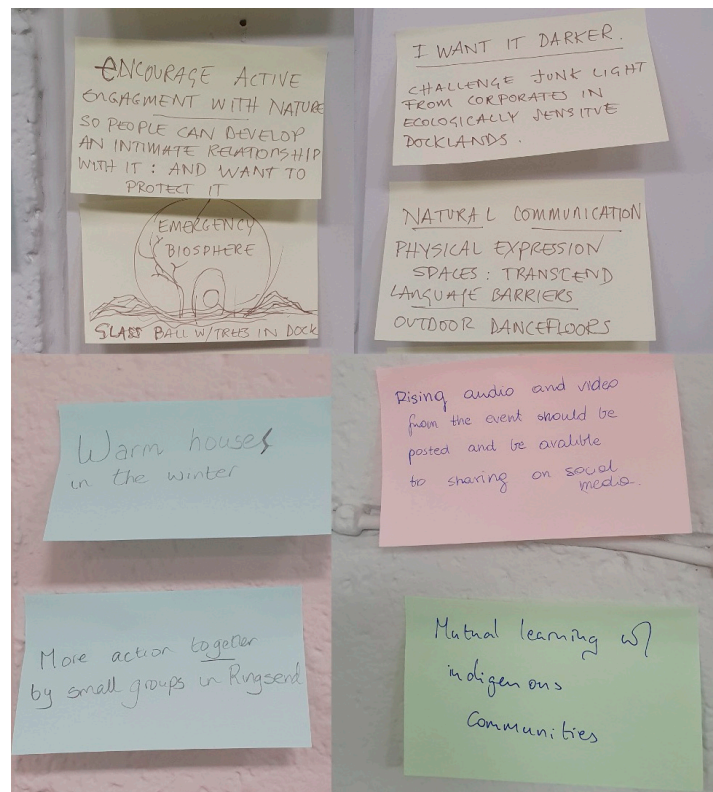 ENCOURAGE ACTIVE
ENGAGMENT WITH NATURE
SO PEOPLE CAN DEVELOP
AN INTIMATE RELATIONSHIP
WITH IT : AND WANT TO
PROTECT IT
EMERGENCY
BIOSPHERE
GLASS BALL W/TREES IN DOCK
I WANT IT DARKER.
CHALLENGE JUNK LIGHT
FROM CORPORATES IN
ECOLOGICALLY SENSITVE
DOCKLANDS.
NATURAL COMMUNICATION
PHYSICAL EXPRESSION
SPACES : TRANSCEND
LANGUAGE BARRIERS
OUTDOOR DANCEFLOORS
Warm houses
in the winter
More action together
by small groups in Ringsend
Rising audio and video
from the event should be
posted and be avalible
to sharing on social
media.
Mutual learning w/
indigenous
communities